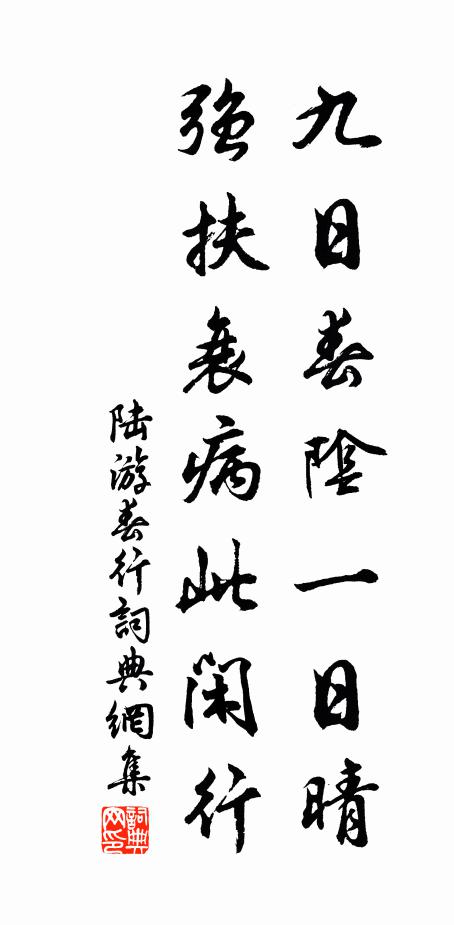 九日春陰一日晴
強扶衰病此閑行
陸游春行詞典網集
詞典网印